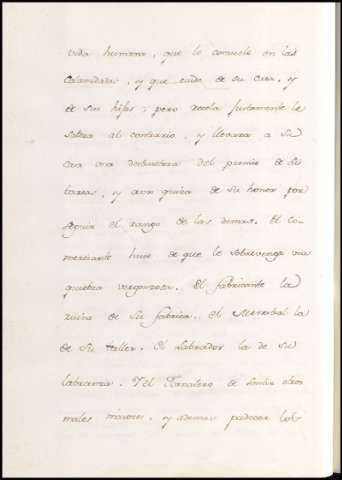 vida humana, que lo consuele en las
Calamidades, y que cuide de su casa, y
de sus hijos; pero recela justamente le
saldra al contrario, y llevara a su
casa una destructora del premio de sus
tareas, y aun quiza de su honor por
seguir el rango de las demas. El Co-
merciante huie de que le sobrevenga una
quiebra vergonzosa. El fabricante la
ruina de su fabrica. el Menestral la
de su taller. El Labrador la de su
labranza. Y el Jornalero el sufrir otros
males maiores, y ademas padecer los